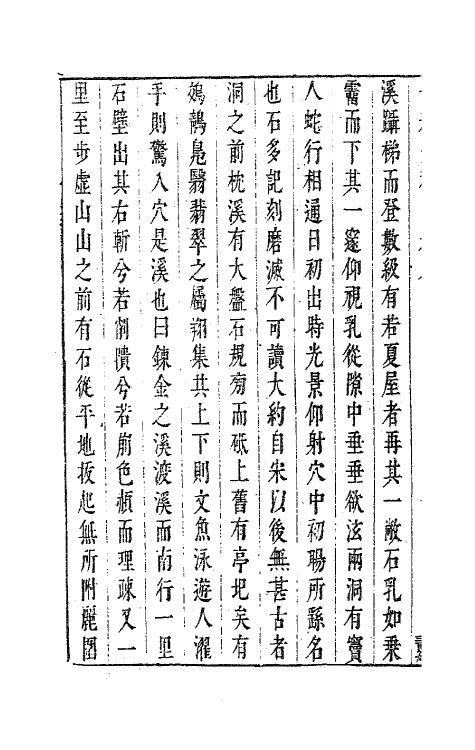 溪躡梯而登數級有若夏屋者再其一敞石乳如乘
霤而下其一邃仰視乳從隙中垂垂欲泫兩洞有竇
人蛇行相通日初出時光景仰射穴中初暘所繇名
也石多記刻磨滅不可讀大約自宋以後無甚古者
洞之前枕溪有大盤石規刓而砥上舊有亭圯矣有
鵁鶄鳧翳翡翠之屬翔集其上下則文魚泳遊人濯
手則驚入穴是溪也曰鍊金之溪渡溪而南行一里
石壁出其右斬兮若削隤兮若崩色頳而理疎又一
里至步虛山山之前有石從平地拔起無所附麗圍